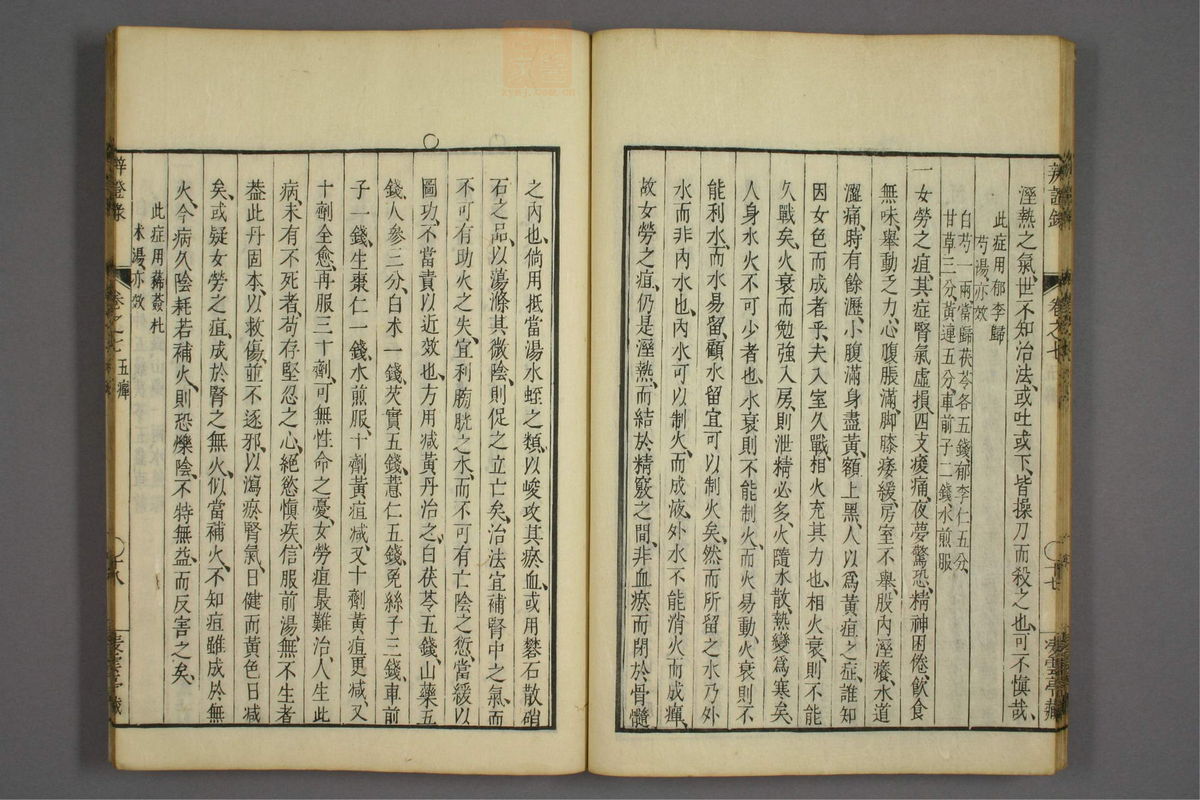 辨證錄
卷之七
十七
溼熱之氣世不知治法、或吐或下、皆操刀而殺之也、可不慎哉、
此症用郁李歸
芍湯、亦效
白芍一兩、當歸茯苓各五錢、郁李仁五分、
甘草三分、黃連五分、車前子二錢、水煎服
一女勞之疸、其症腎氣虛損、四支痠痛、夜夢驚恐、精神困倦、飲食
無味、舉動乏力、心腹脹滿、脚膝痿緩、房室不舉、股內溼癢、水道
澀痛、時有餘瀝、小腹滿、身盡黃、額上黑、人以爲黃疸之症、誰知
因女色而成者乎、夫入室久戰、相火充其力也、相火衰則不能
久戰矣、火衰而勉強入房、則泄精必多、火隨水散、熱變爲寒矣、
人身水火不可少者也、水衰則不能制火、而火易動、火衰則不
能利水、而水易留、顧水留宜可以制火矣、然而所留之水乃外
水而非內水也、內水可以制火、而成液、外水不能消火、而成癉、
故女勞之疸、仍是溼熱、而結於精竅之間、非血瘀而閉於骨髓
之內也、倘用抵當湯水蛭之類、以峻攻其瘀血、或用礬石散硝
石之品、以蕩滌其微陰、則促之立亡矣、治法宜補腎中之氣、而
不可有助火之失、宜利膀胱之水、而不可有亡陰之愆、當緩以
圖功、不當責以近效也、方用减黃丹治之、白茯苓五錢、山藥五
錢、人參三分、白术一錢、芡實五錢、薏仁五錢、兔絲子三錢、車前
子一錢、生棗仁一錢、水煎服、十劑黃疸减、又十劑黃疸更减、又
十劑全愈、再服三十劑、可無性命之憂、女勞疸最難治、人生此
病、未有不死者、苟存堅忍之心、絕慾慎疾、信服前湯、無不生者
蓋此丹固本、以救傷、並不逐邪、以瀉瘀、腎氣日健而黃色日减
矣、或疑女勞之疸、成於腎之無火、似當補火、不知疸雖成於無
火、今病久陰耗、若補火、則恐爍陰、不特無益、而反害之矣、
此症用蓊薈杜
术湯、亦效
五癉
十八